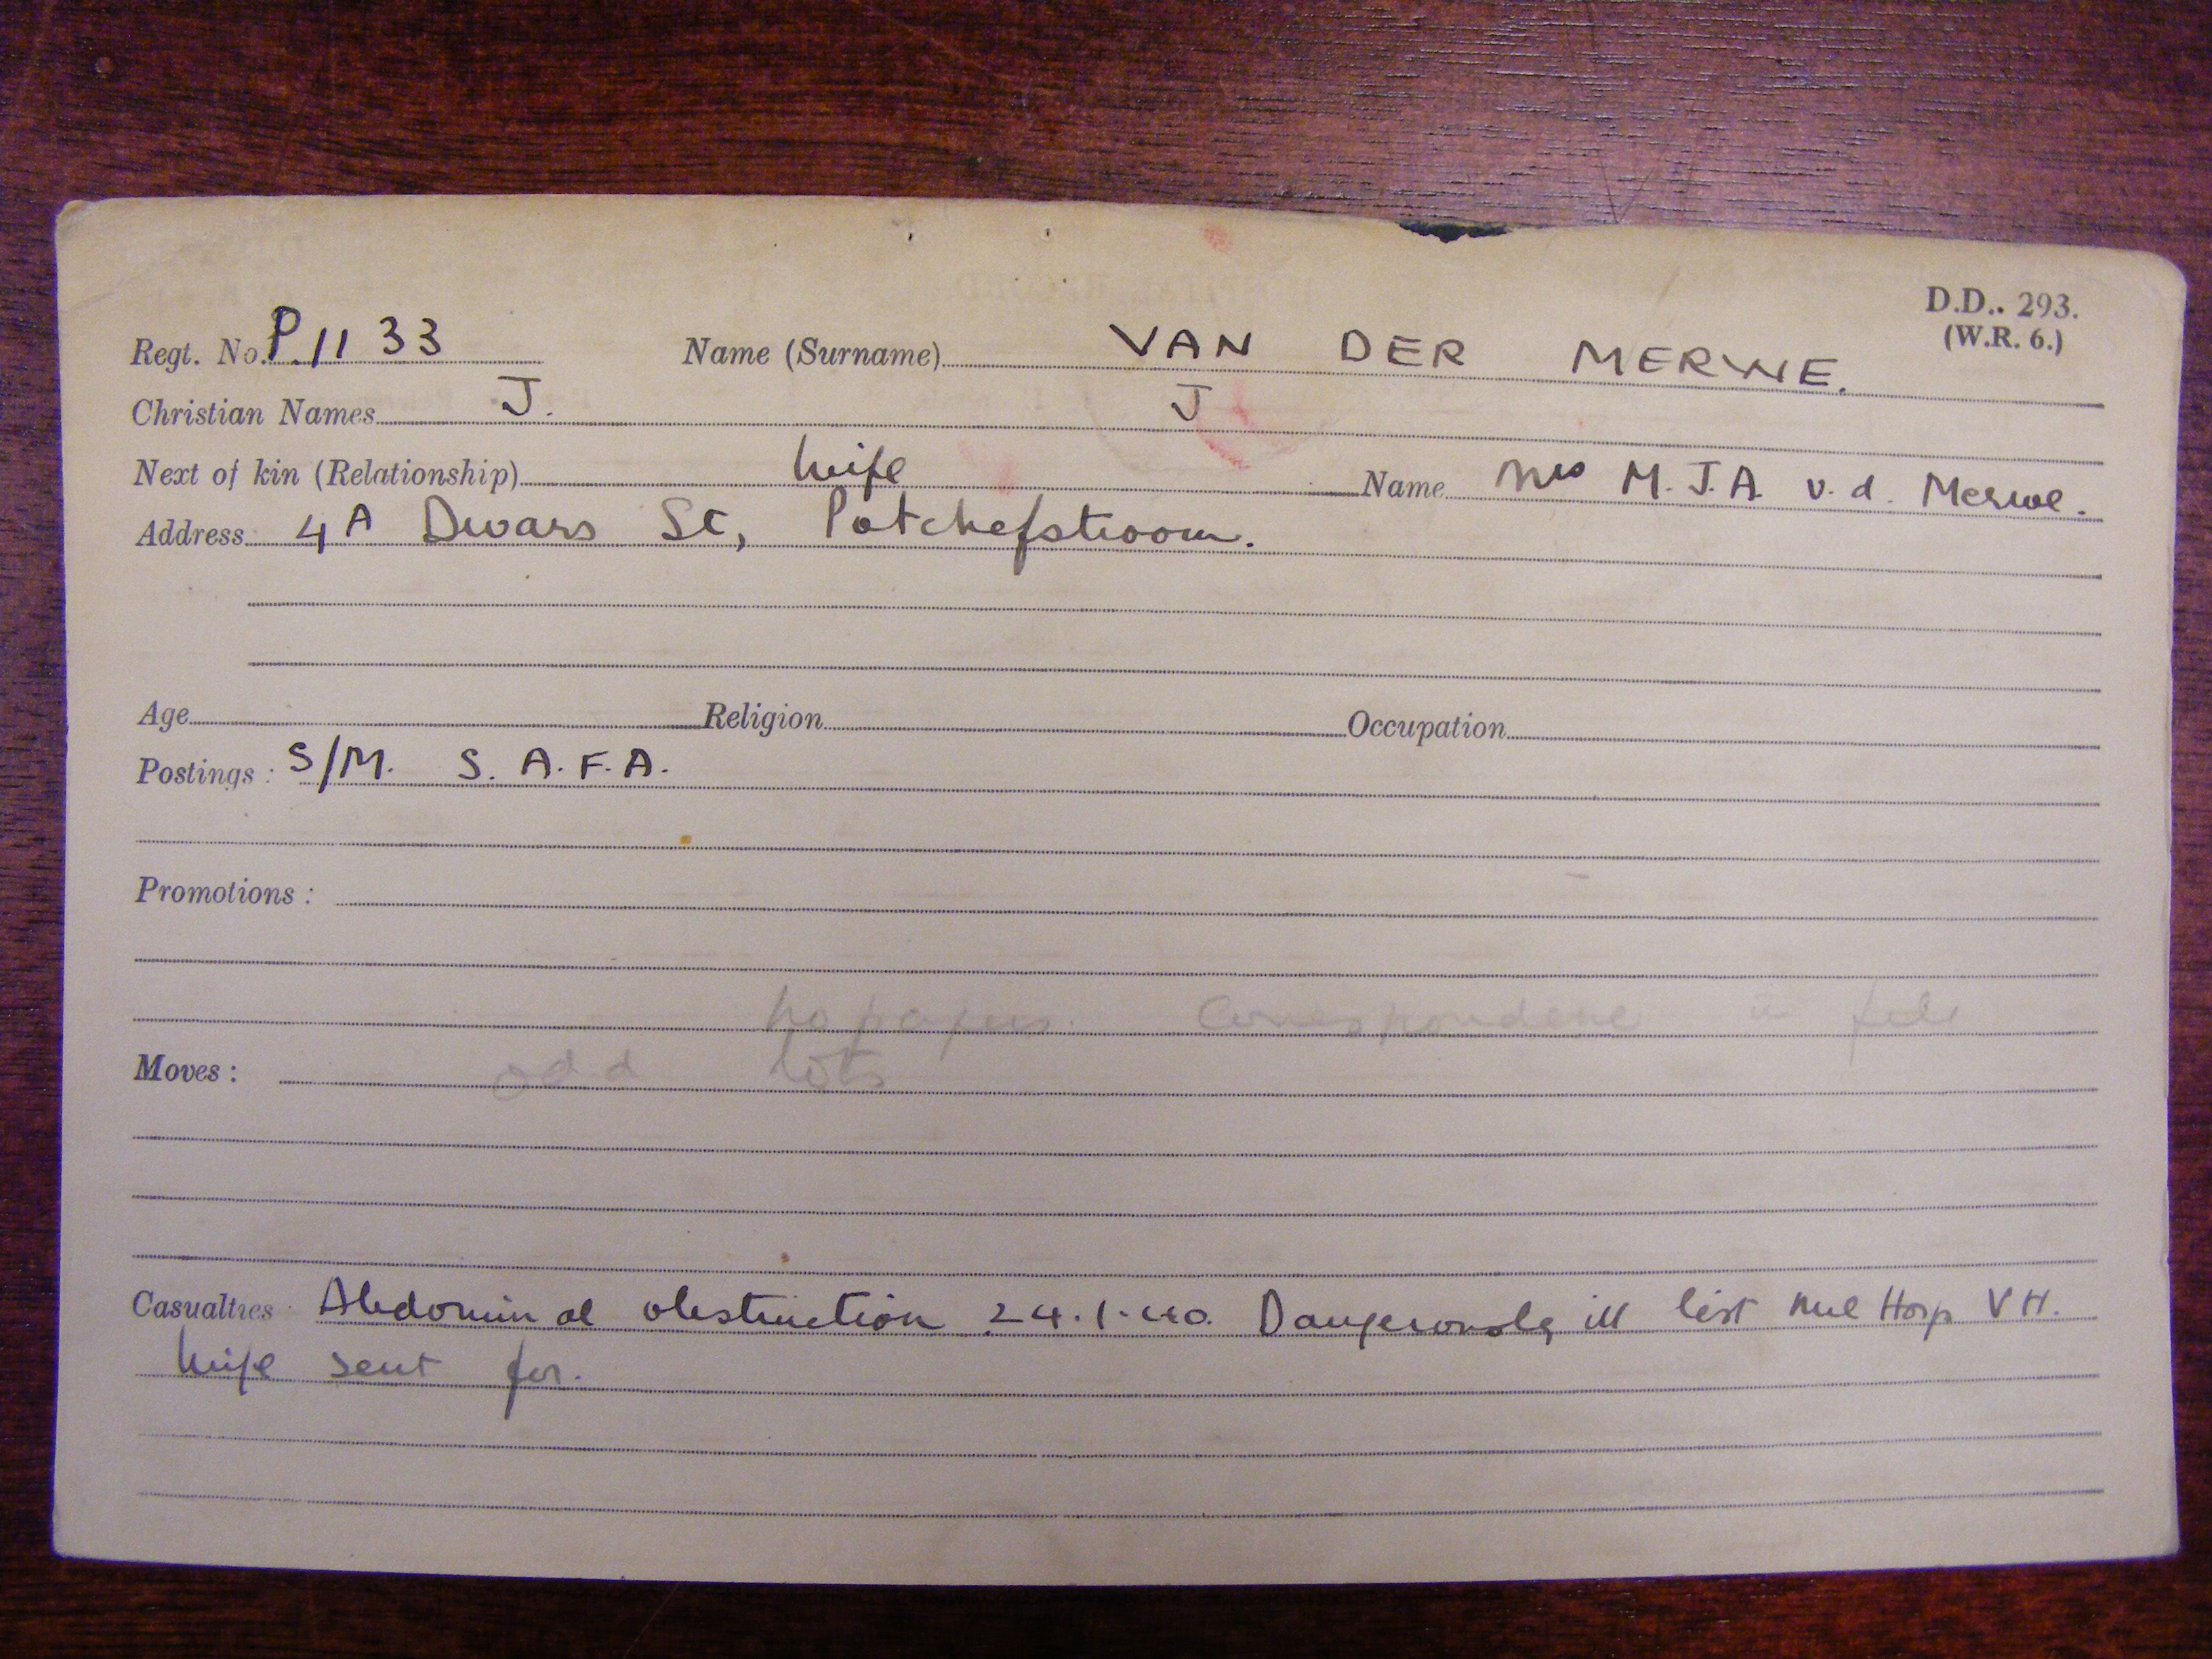 D.D.. 293.
(W.R. 6.)
Regt. No. P.1133 Name (Surname) VAN DER MERWE.
Christian Names J. J
Next of kin (Relationship) Wife Name Mrs M.J.A. v.d. Merwe.
Address 4A Dwars St, Potchefstroom.
Age Religion Occupation
Postings : S/M. S.A.F.A.
Promotions :
No papers. Correspondence in file
Moves : odd lots
Casualties Abdominal obstruction 24.1.40. Dangerously ill list Mil Hosp VH.
Wife sent for.